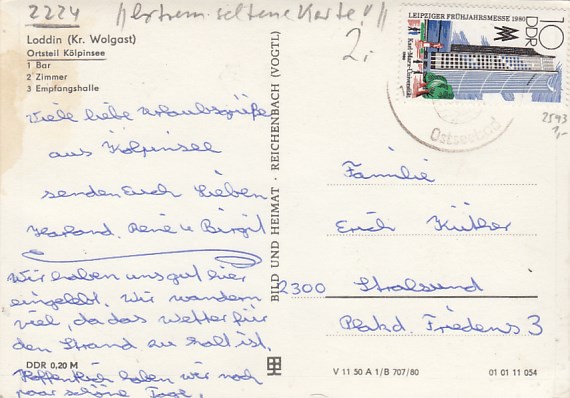 2224 "Extrem seltene Karte!"
2,-
Loddin (Kr. Wolgast)
Ortsteil Kölpinsee
1 Bar
2 Zimmer
3 Empfangshalle
Viele liebe Urlaubsgrüße
aus Kölpinsee
senden Euch Lieben
René u. Birgit
Wir haben uns gut hier
eingelebt. Wir wandern
viel, da das Wetter für
den Strand zu kalt ist.
Hoffentlich haben wir noch
paar schöne Tage.
DDR 0,20 M
BILD UND HEIMAT · REICHENBACH (VOGTL)
LEIPZIGER FRÜHJAHRSMESSE 1980
DDR
10
Karl-Marx-Universität
Ostseebad
2593
1,-
Familie
Erich Küther
2300 Stralsund
Platz d. Friedens 3
V 11 50 A 1/B 707/80
01 01 11 054